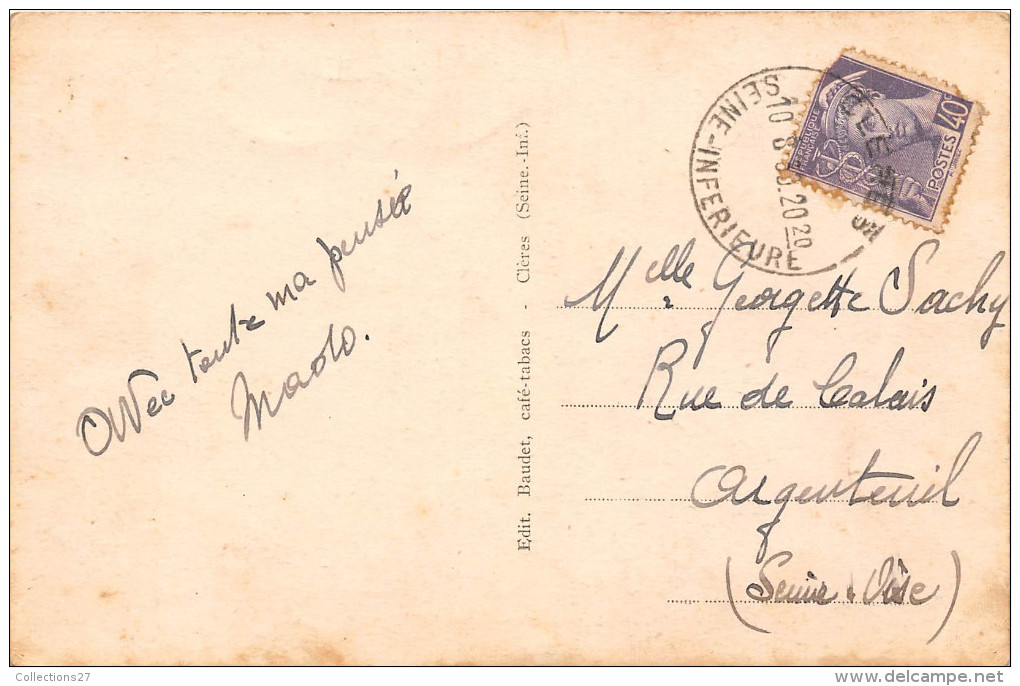 Avec toute ma pensée
Mado.
Edit. Baudet, café-tabacs - Clères (Seine.-Inf.)
SEINE-INFERIEURE
20 20
REPUBLIQUE
FRANÇAISE
POSTES
40c
Melle Georgette Sachy
Rue de Calais
Argenteuil
(Seine & Oise)
Collections27
www.delcampe.net